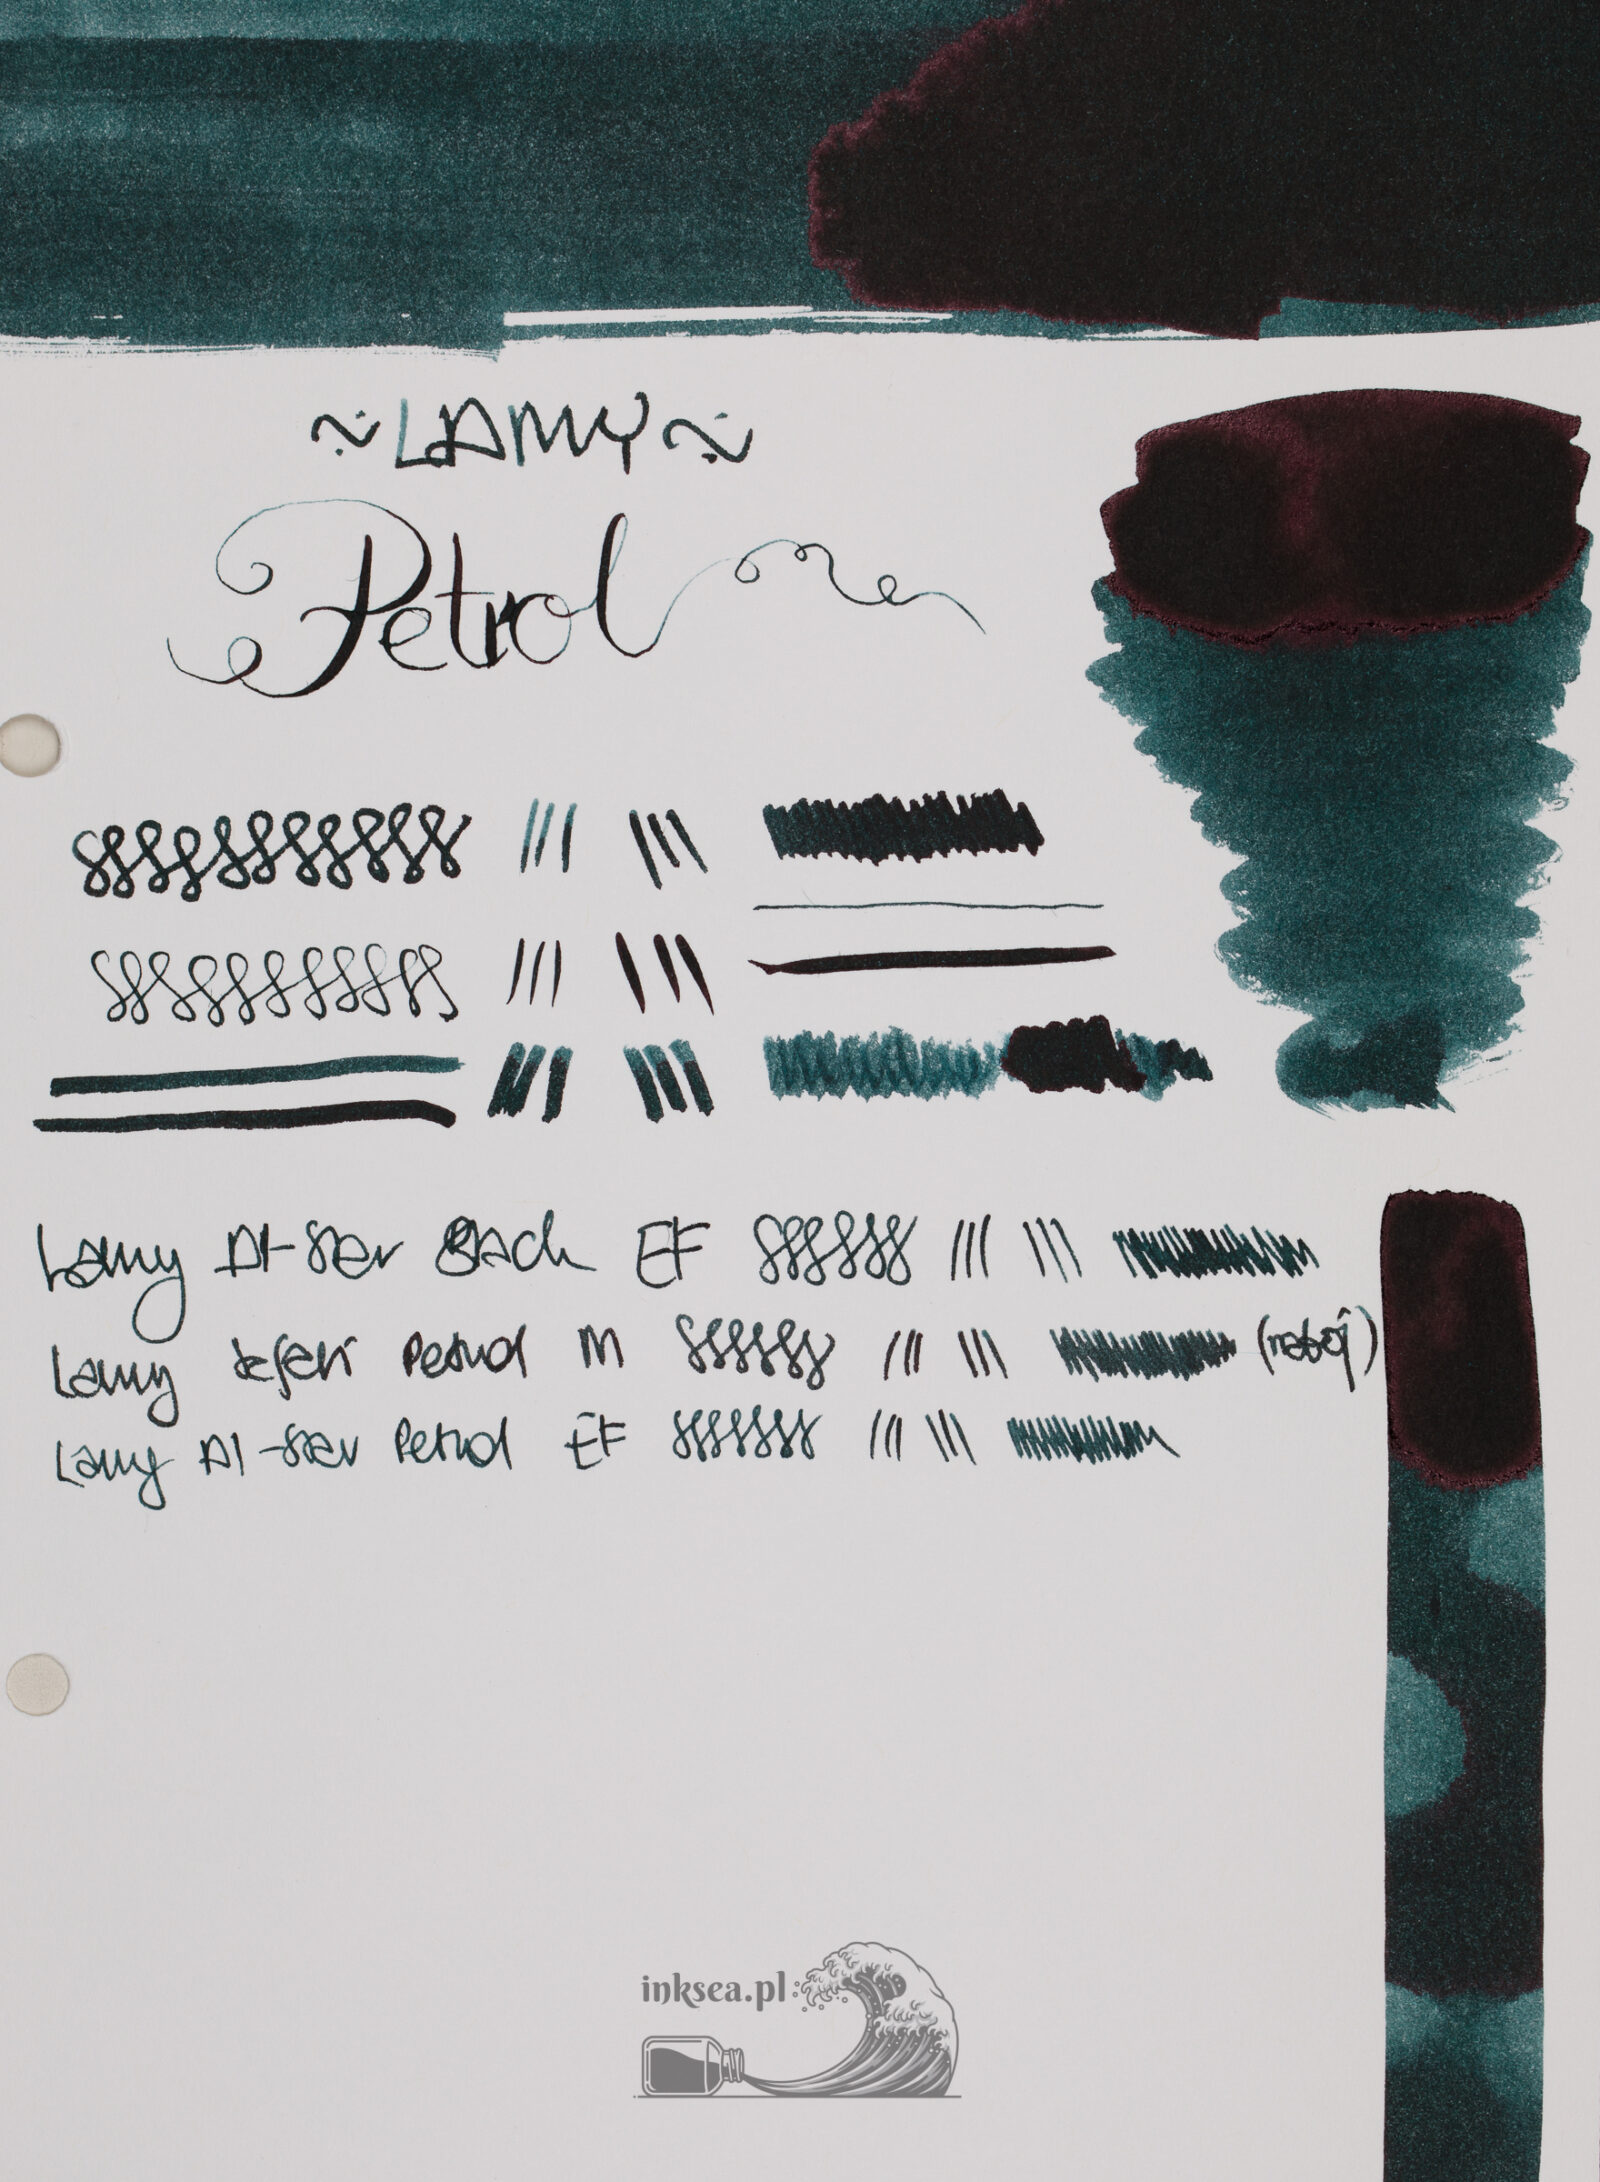 ~ LAMY ~
Petrol
Lamy Al-Star Black EF
Lamy Safari Petrol M (nabój)
Lamy Al-Star Petrol EF
inksea.pl